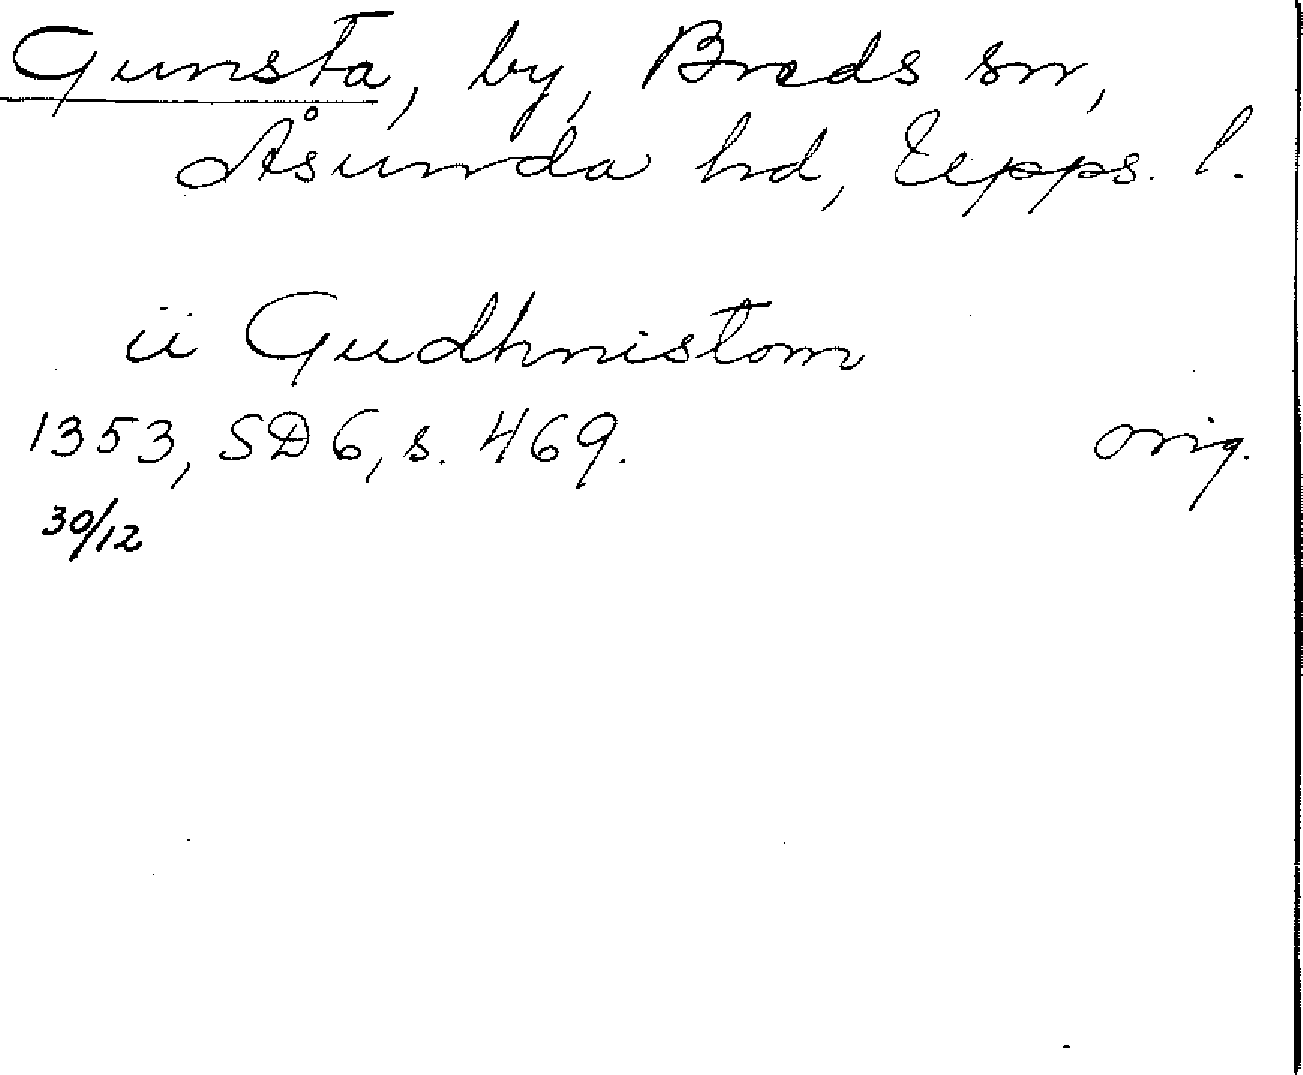 Gunsta, by, Breds sn,
Åsunda hd, Upps. l.
ii Gudhnistom
1353, SD 6, s. 469. orig.
30/12